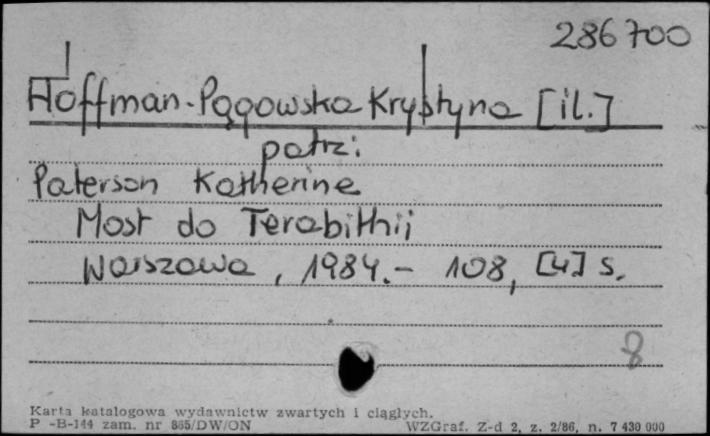 286700
Hoffman-Pągowska Krystyna [il.]
patrz:
Paterson Katherine
Most do Terabithii
Warszawa, 1984.- 108, [4] s.
8
Karta katalogowa wydawnictw zwartych i ciągłych.
P -B-144 zam. nr 865/DW/ON WZGraf. Z-d 2, z. 2/86, n. 7 430 000